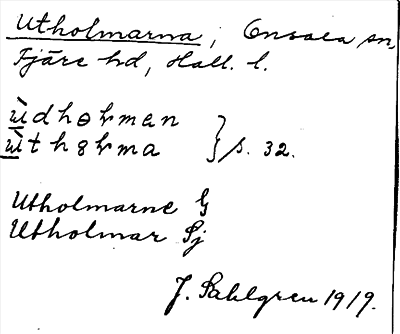 Utholmarna, Onsala sn,
Fjäre hd, Hall. l.
ùdhɵɫmen
ùthɵɫma } s. 32.
Utholmarne G
Utholmar Sj
J. Sahlgren 1919.